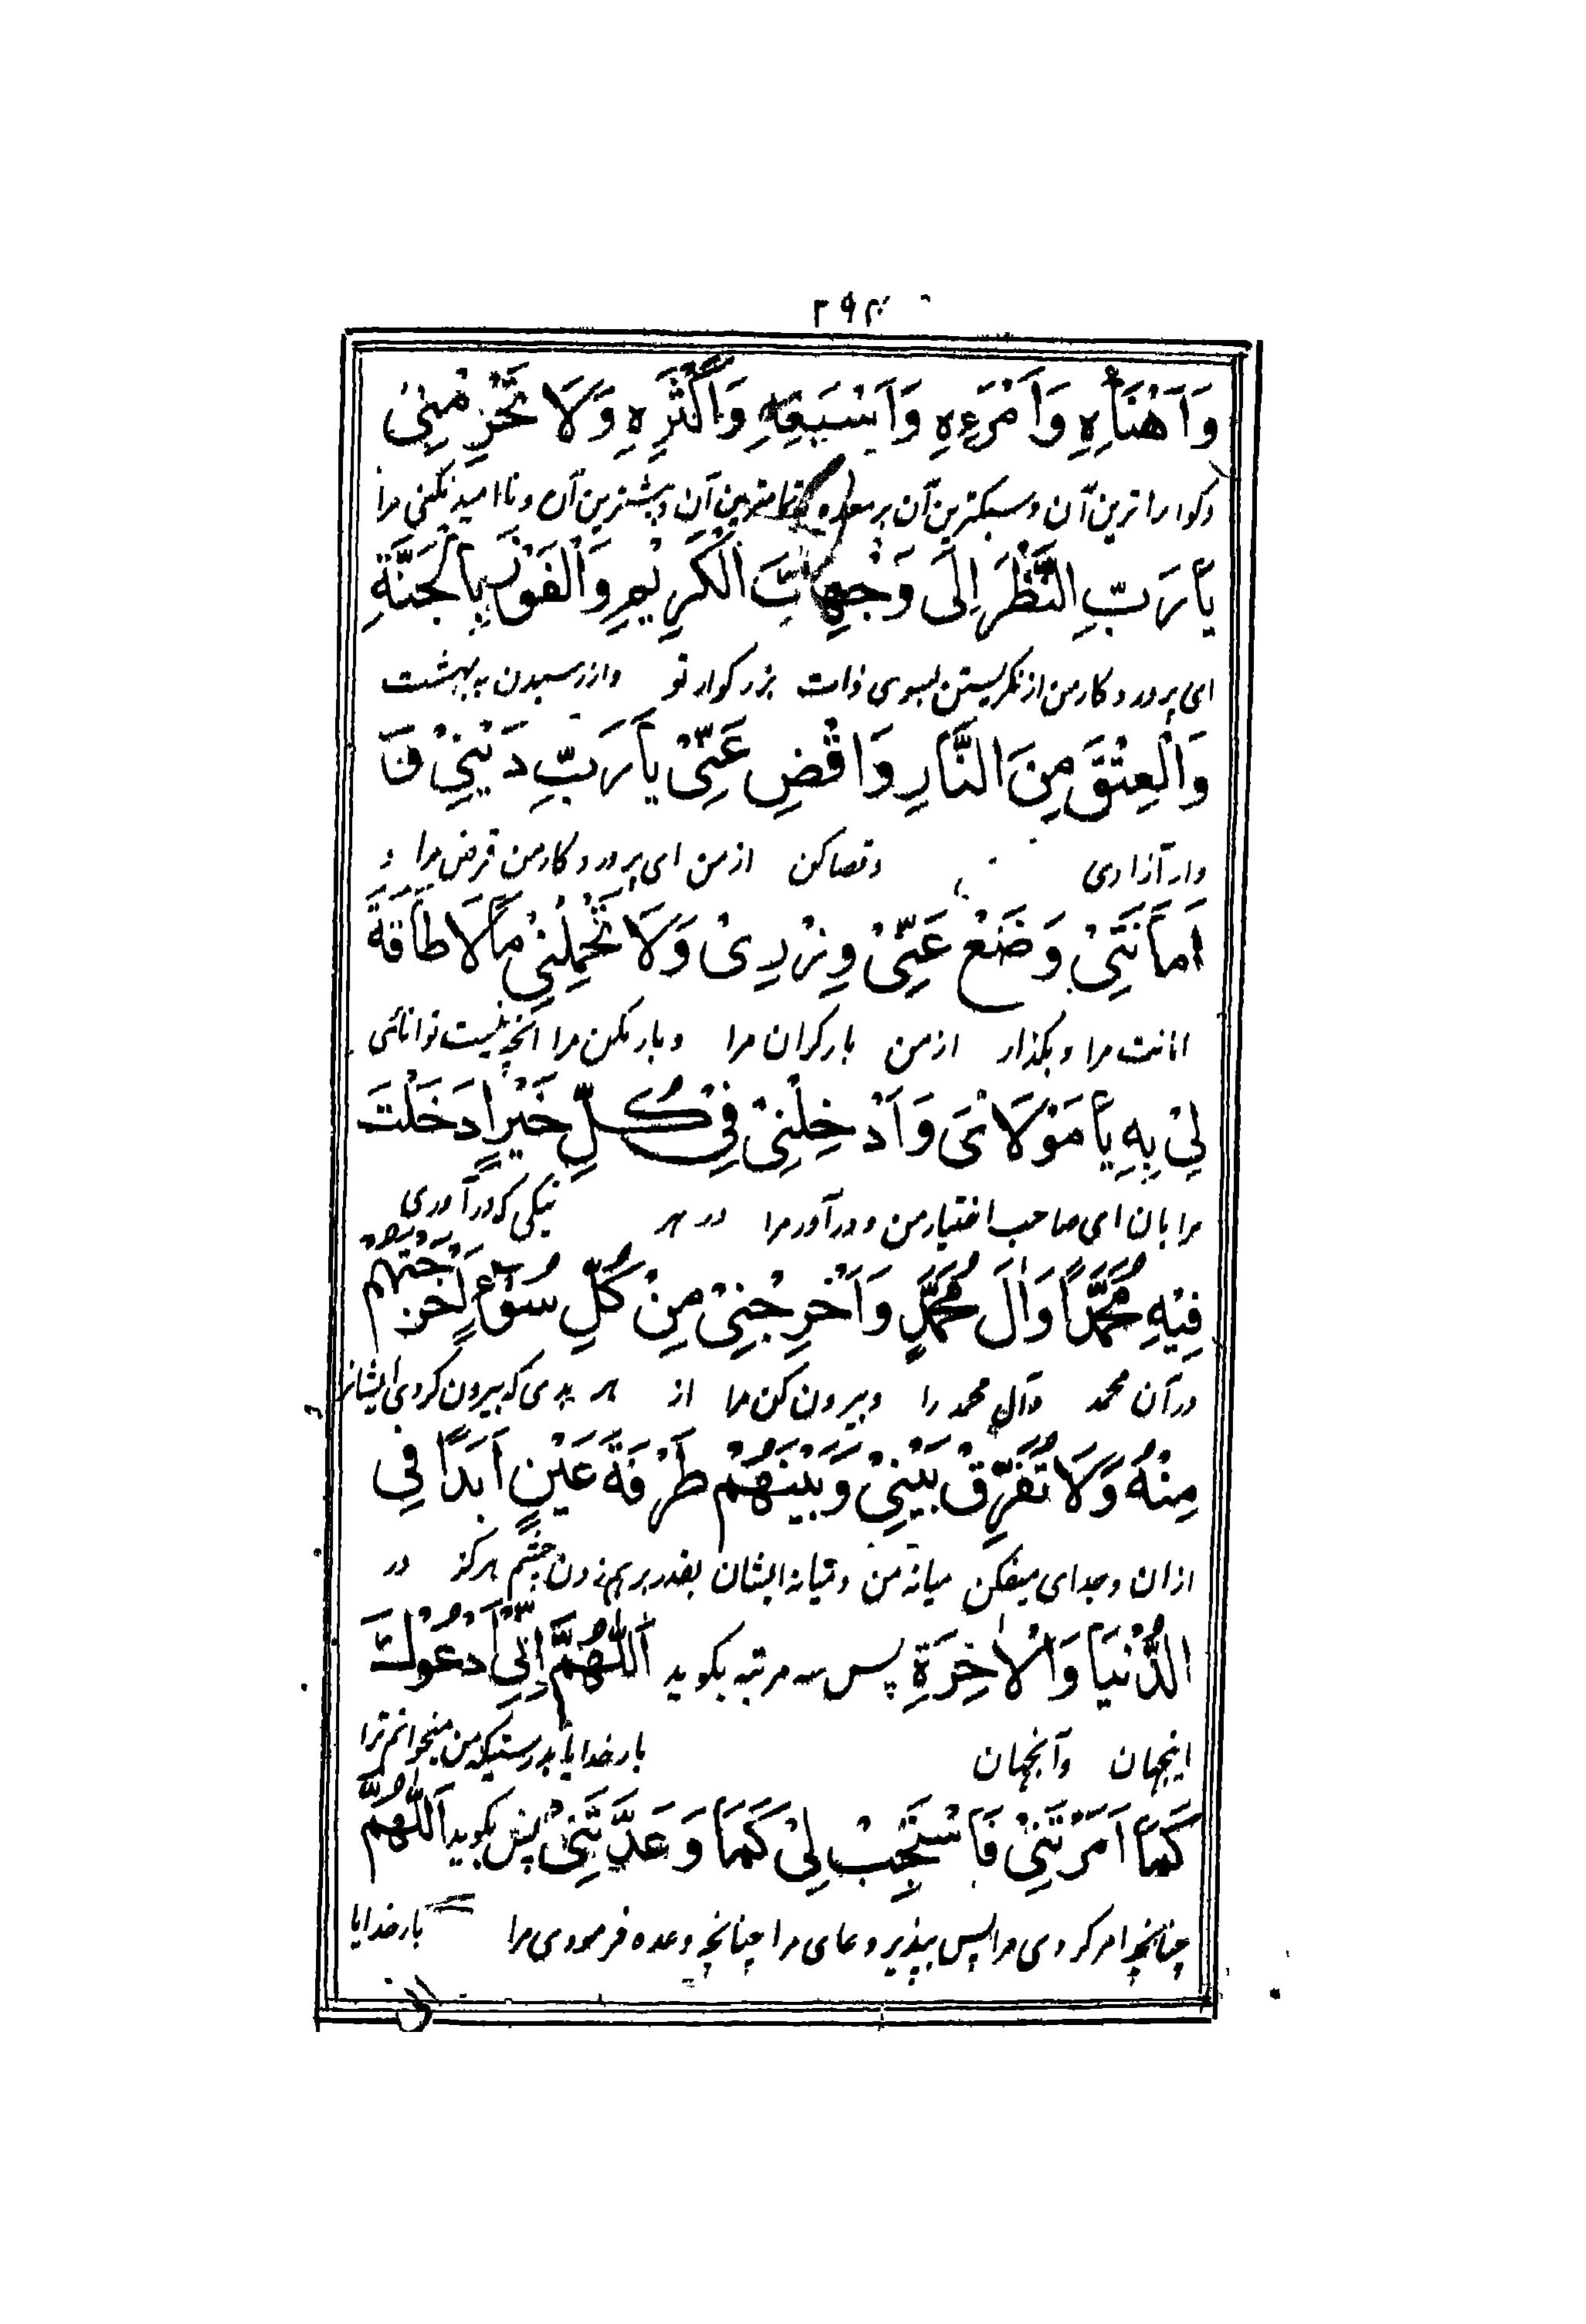 ۲۹۴
وَاَهْنَأِهٖ وَاَمْرَءِهٖ وَاَسْبَغِهٖ وَاَكْثَرِهٖ وَلَا تَحْرِمْنِیْ
وکوارا ترین آن و سبکترین آن بر معده و تمامترین آن و بیشترین آن و نا امید نکنی مرا
یَا رَبِّ النَّظَرَ اِلٰی وَجْهِكَ الْكَرِیْمِ وَالْفَوْزَ بِالْجَنَّةِ
ای پرورد کار من از نکریستن بسوی ذات بزرکوار تو و از رسیدن به بهشت
وَالْعِتْقَ مِنَ النَّارِ وَاقْضِ عَنِّیْ یَا رَبِّ دَیْنِیْ وَ
و از آزادی و قضا کن از من ای پرورد کار من قرض مرا و
اَمَانَتِیْ وَضَعْ عَنِّیْ وِزْرِیْ وَلَا تُحَمِّلْنِیْ مَا لَا طَاقَةَ
امانت مرا و بکذار از من بار کران مرا و بار مکن مرا آنچه نیست توانائی
لِیْ بِهٖ یَا مَوْلَایَ وَاَدْخِلْنِیْ فِیْ كُلِّ خَیْرٍ اَدْخَلْتَ
مرا بان ای صاحب اختیار من و در آور مرا در هر نیکی که در آوردی
فِیْهِ مُحَمَّدًا وَاٰلَ مُحَمَّدٍ وَاَخْرِجْنِیْ مِنْ كُلِّ سُوْٓءٍ اَخْرَجْتَهُمْ
در آن محمد وآل محمد را و بیرون کن مرا از هر بدی که بیرون کردی ایشانرا
مِنْهُ وَلَا تُفَرِّقْ بَیْنِیْ وَبَیْنَهُمْ طَرْفَةَ عَیْنٍ اَبَدًا فِی
ازان و جدای میفکن میانه من و میانه ایشان بقدر برهم زدن چشم هرکز در
الدُّنْیَا وَالْاٰخِرَةِ پس سه مرتبه بکوید اَللّٰهُمَّ اِنِّیْ اَدْعُوْكَ
اینجهان و آنجهان بار خدایا بدرستیکه من میخوانم ترا
كَمَا اَمَرْتَنِیْ فَاسْتَجِبْ لِیْ كَمَا وَعَدْتَنِیْ پس بکوید اَللّٰهُمَّ
چنانچه امر کردی مرا پس بپذیر دعای مرا چنانچه وعده فرمودی مرا بار خدایا